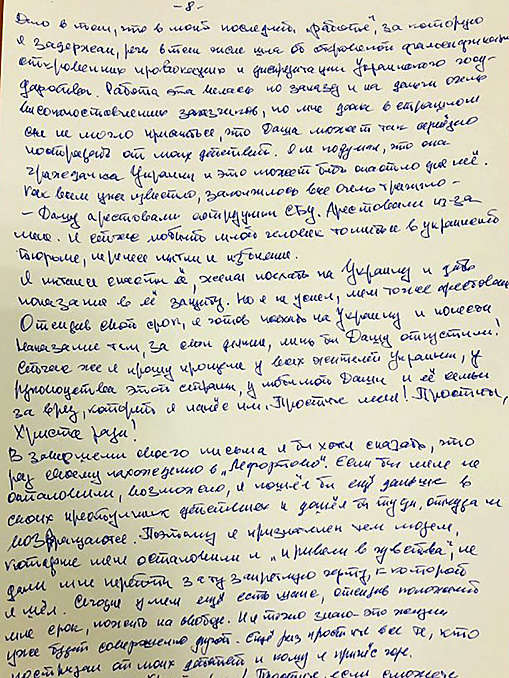 - 8 -
Дело в том, что в моей последней „работе“, за которую
я задержан, речь в том числе шла об откровенной фальсификации
откровенных провокациях и дискредитации Украинского госу-
дарства. Работа эта велась по заказу и на деньги очень
высокопоставленных заказчиков, но мне даже в страшном
сне не могло присниться, что Даша может так серьёзно
пострадать от моих действий. Я не подумал, что она
гражданка Украины и это может быть опасно для неё.
Как всем уже известно, закончилось всё очень трагично -
- Дашу арестовали сотрудники СБУ. Арестовали из-за
меня. И сейчас любимый мной человек томится в украинской
тюрьме, перенеся пытки и
Я пытался спасти её, желал поехать на Украину и дать
показания в её защиту. Но я не успел, меня тоже арестовали
Отсидев свой срок, я готов поехать на Украину и понести
наказание там, за свои деяния, лишь бы Дашу отпустили!
Сейчас же я прошу прощения у всех жителей Украины, у
руководства этой страны, у любимой Даши и её семьи
за вред, который я нанёс им. Простите меня! Простите,
Христа ради!
В завершении своего письма я бы хотел сказать, что
рад своему нахождению в „Лефортово“. Если бы меня не
остановили, возможно, я пошёл бы ещё дальше в
своих преступных действиях и дошёл бы туда, откуда не
возвращаются. Поэтому я признателен тем людям,
которые меня остановили и „привели в чувства“, не
дали мне перейти за ту запретную черту, к которой
я шёл. Сегодня у меня ещё есть шанс, отсидев положенный
мне срок, пожить на свободе. И я точно знаю - это жизнь
уже будет совершенно другой. Ещё раз простите все те, кто
пострадал от моих действий и кому я принёс горе.
Простите, если сможете